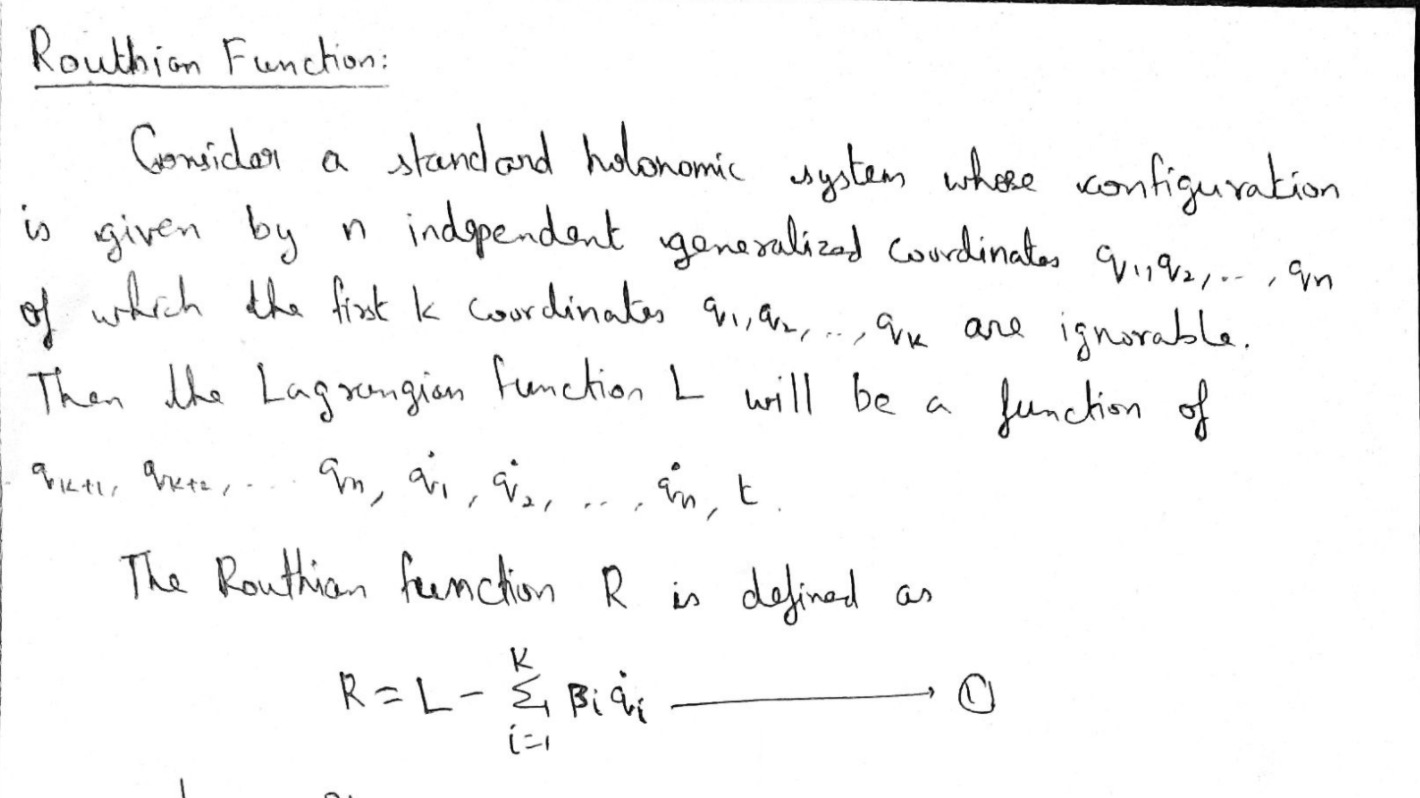 Routhian Function:
Consider a standard holonomic system whose configuration
is given by n independent generalized coordinates q₁, q₂, ... , qₙ
of which the first k coordinates q₁, q₂, ..., qₖ are ignorable.
Then the Lagrangian function L will be a function of
qₖ₊₁, qₖ₊₂, .... qₙ, q̇₁, q̇₂, ..., q̇ₙ, t.
The Routhian function R is defined as
R = L - Σᵢ₌₁ᴷ βᵢ q̇ᵢ ⟶ ①